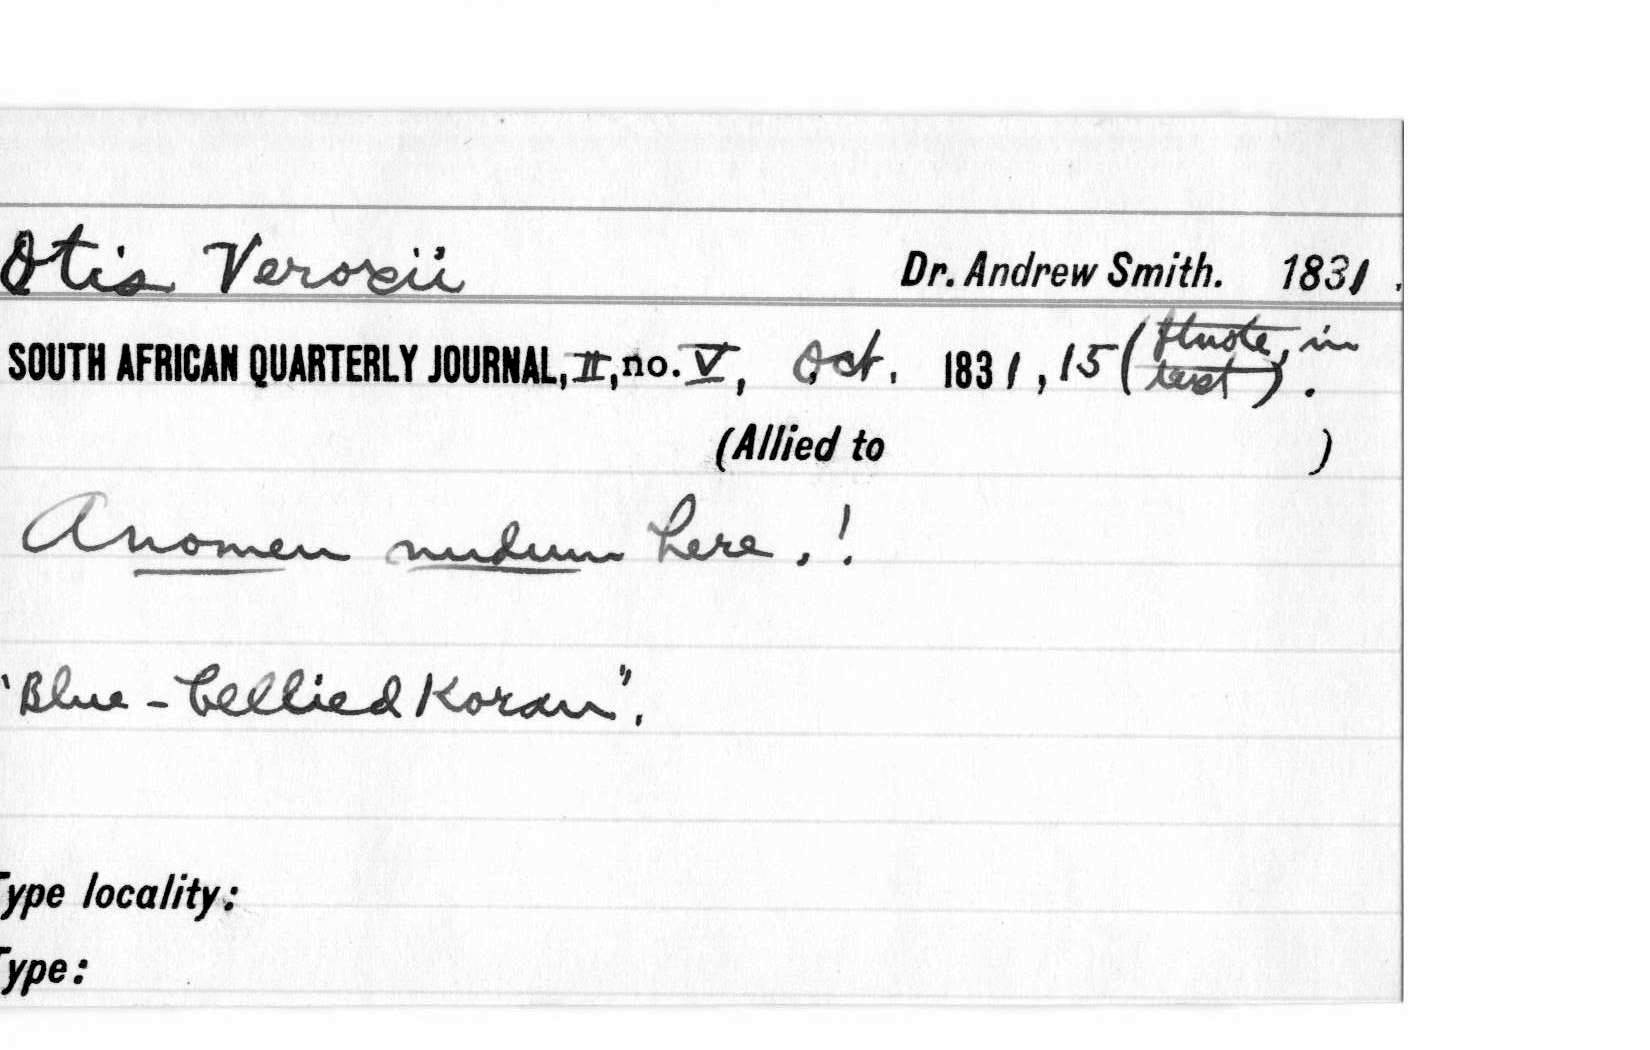 Otis Veroxii Dr. Andrew Smith. 1831.
SOUTH AFRICAN QUARTERLY JOURNAL, II, no. V, Oct. 1831, 15 (ftnote, in text).
(Allied to )
A nomen nudum here.!
"Blue-bellied Koran".
Type locality:
Type: